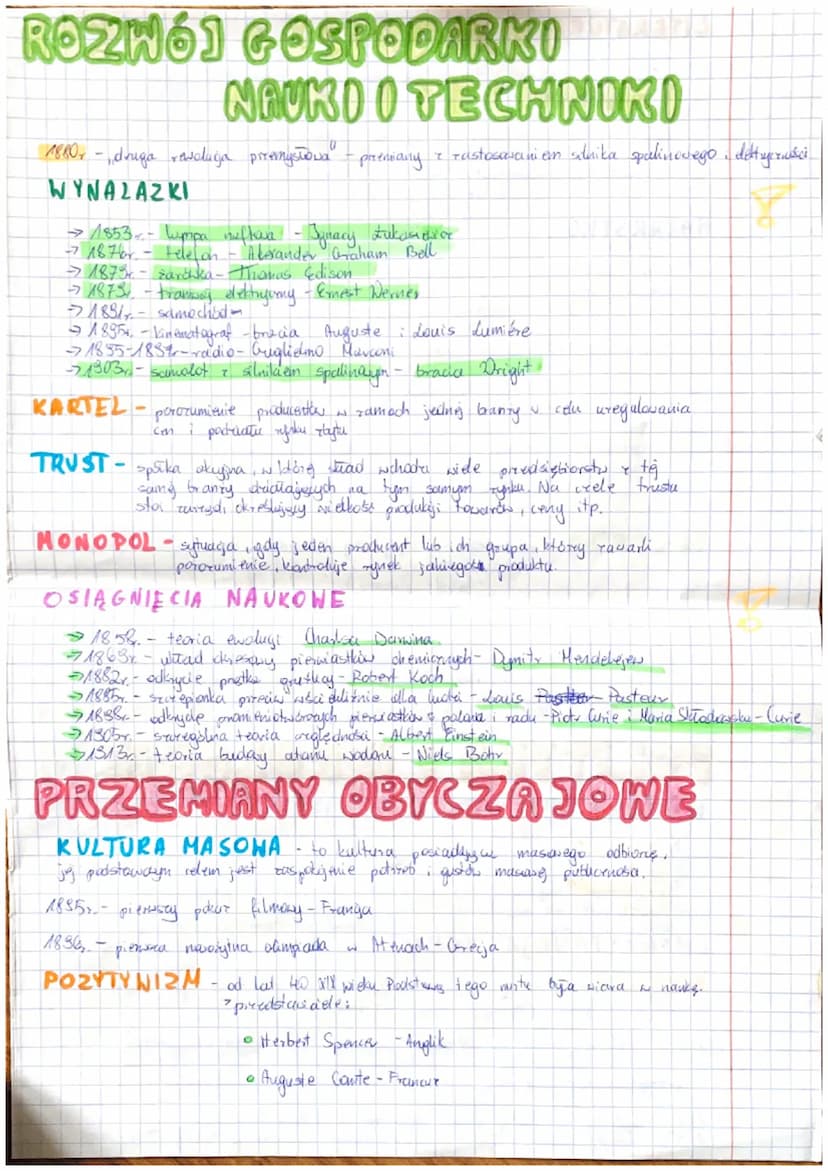 ROZWÓJ GOSPODARKI
NAUKI I TECHNIKI
1880r - „druga rewolucja przemysłowa" - przemiany z zastosowaniem silnika spalinowego i elektryczności
WYNALAZKI
→ 1853r. - lampa naftowa - Ignacy Łukasiewicz
→ 1876r. - telefon - Alexander Graham Bell
→ 1879r. - żarówka - Thomas Edison
→ 1879r. - tramwaj elektryczny - Ernest Werner
→ 1891r. - samochód -
→ 1895r. - kinematograf - bracia Auguste i Louis Lumiére
→ 1895-1897r - radio - Guglielmo Marconi
→ 1903r. - samolot z silnikiem spalinowym - bracia Wright
KARTEL - porozumienie producentów w ramach jednej branży w celu uregulowania
cen i podziału rynku zbytu
TRUST - spółka akcyjna, w której skład wchodzi wiele przedsiębiorstw z tej
samej branży działających na tym samym rynku. Na czele trustu
stoi zarząd, określający wielkość produkcji towarów, ceny itp.
MONOPOL - sytuacja, gdy jeden producent lub ich grupa, który zawarli
porozumienie, kontroluje rynek jakiegoś produktu.
OSIĄGNIĘCIA NAUKOWE
→ 1858r. - teoria ewolucji Charlesa Darwina
→ 1869r. - układ okresowy pierwiastków chemicznych - Dymitr Mendelejew
→ 1882r. - odkrycie prątka gruźlicy - Robert Koch
→ 1885r. - szczepionka przeciw wściekliźnie dla ludzi - Louis Pasteur
→ 1898r. - odkrycie promieniotwórczych pierwiastków polonu i radu - Piotr Curie i Maria Skłodowska-Curie
→ 1905r. - szczególna teoria względności - Albert Einstein
→ 1913r. - teoria budowy atomu wodoru - Niels Bohr
PRZEMIANY OBYCZAJOWE
KULTURA MASOWA - to kultura posiadająca masowego odbiorcę,
jej podstawowym celem jest zaspokojenie potrzeb i gustów masowej publiczności.
1895r. - pierwszy pokaz filmowy - Francja
1896r. - pierwsza nowożytna olimpiada w Atenach - Grecja
POZYTYWIZM - od lat 40 XIX wieku. Podstawą tego nurtu była wiara w naukę.
> przedstawiciele:
Herbert Spencer - Anglik
Auguste Comte - Francuz